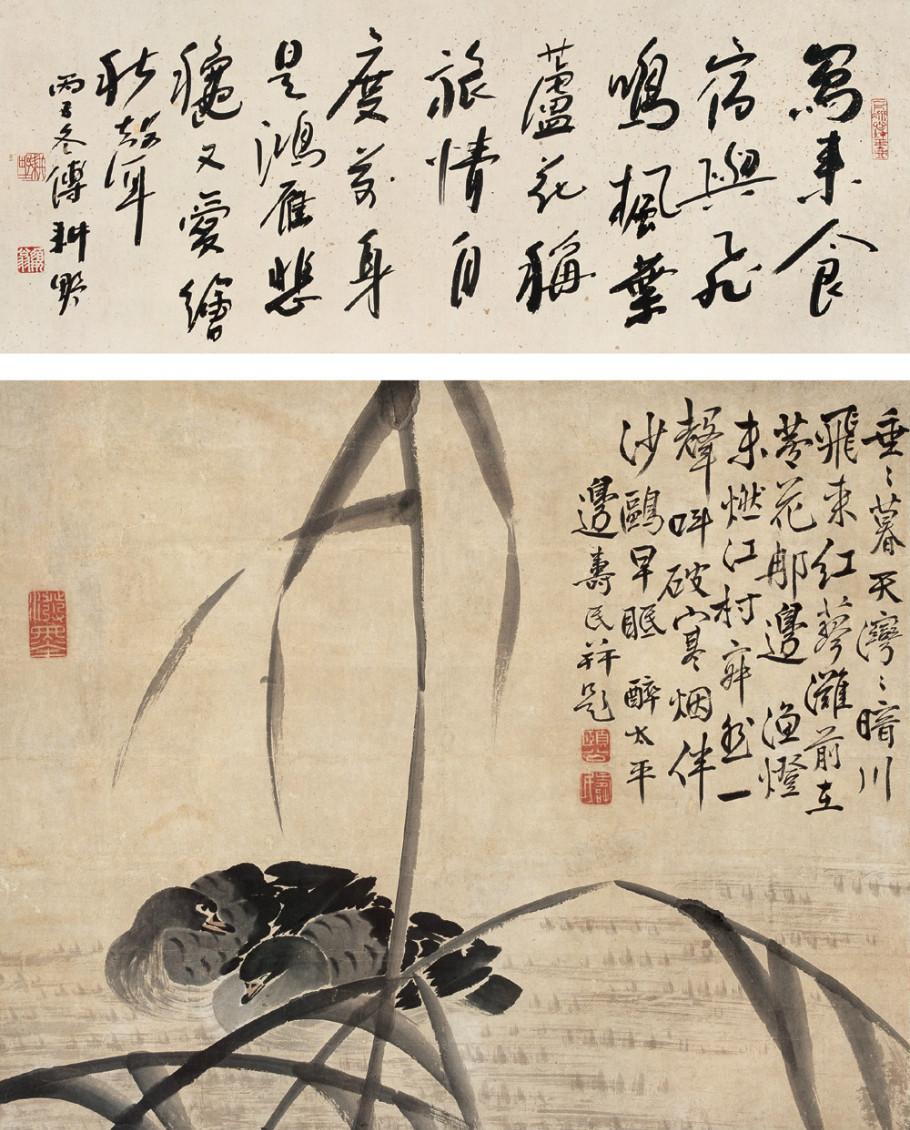 寫来食
宿與飛
鳴楓葉
蘆花稱
旅情自
度前身
是鴻雁悲
穐又愛繪
秋聲
丙子冬傅耕野
垂〻暮天灣〻暗川
飛来紅蓼灘前在
芦花那邊 漁燈
未燃江村寂然一
聲叫破寒烟伴
沙鷗早眠 醉太平
邊壽民并題
頤公